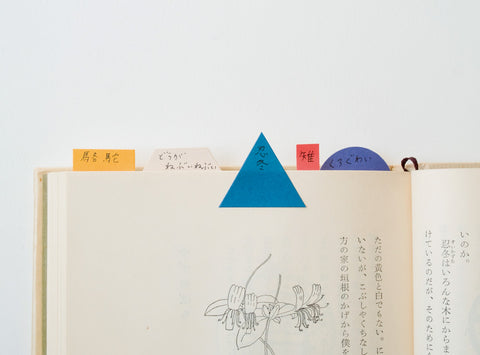 駱駝
どうが
ねぶいねぶい
忍冬
雉
くろぐわい
いのか。
忍冬はいろんな木にからま
けているのだが、そのために
ただの黄色と白でもない。に
いたいが、こぶしやくちなし
方の家の垣根のかげから僕を